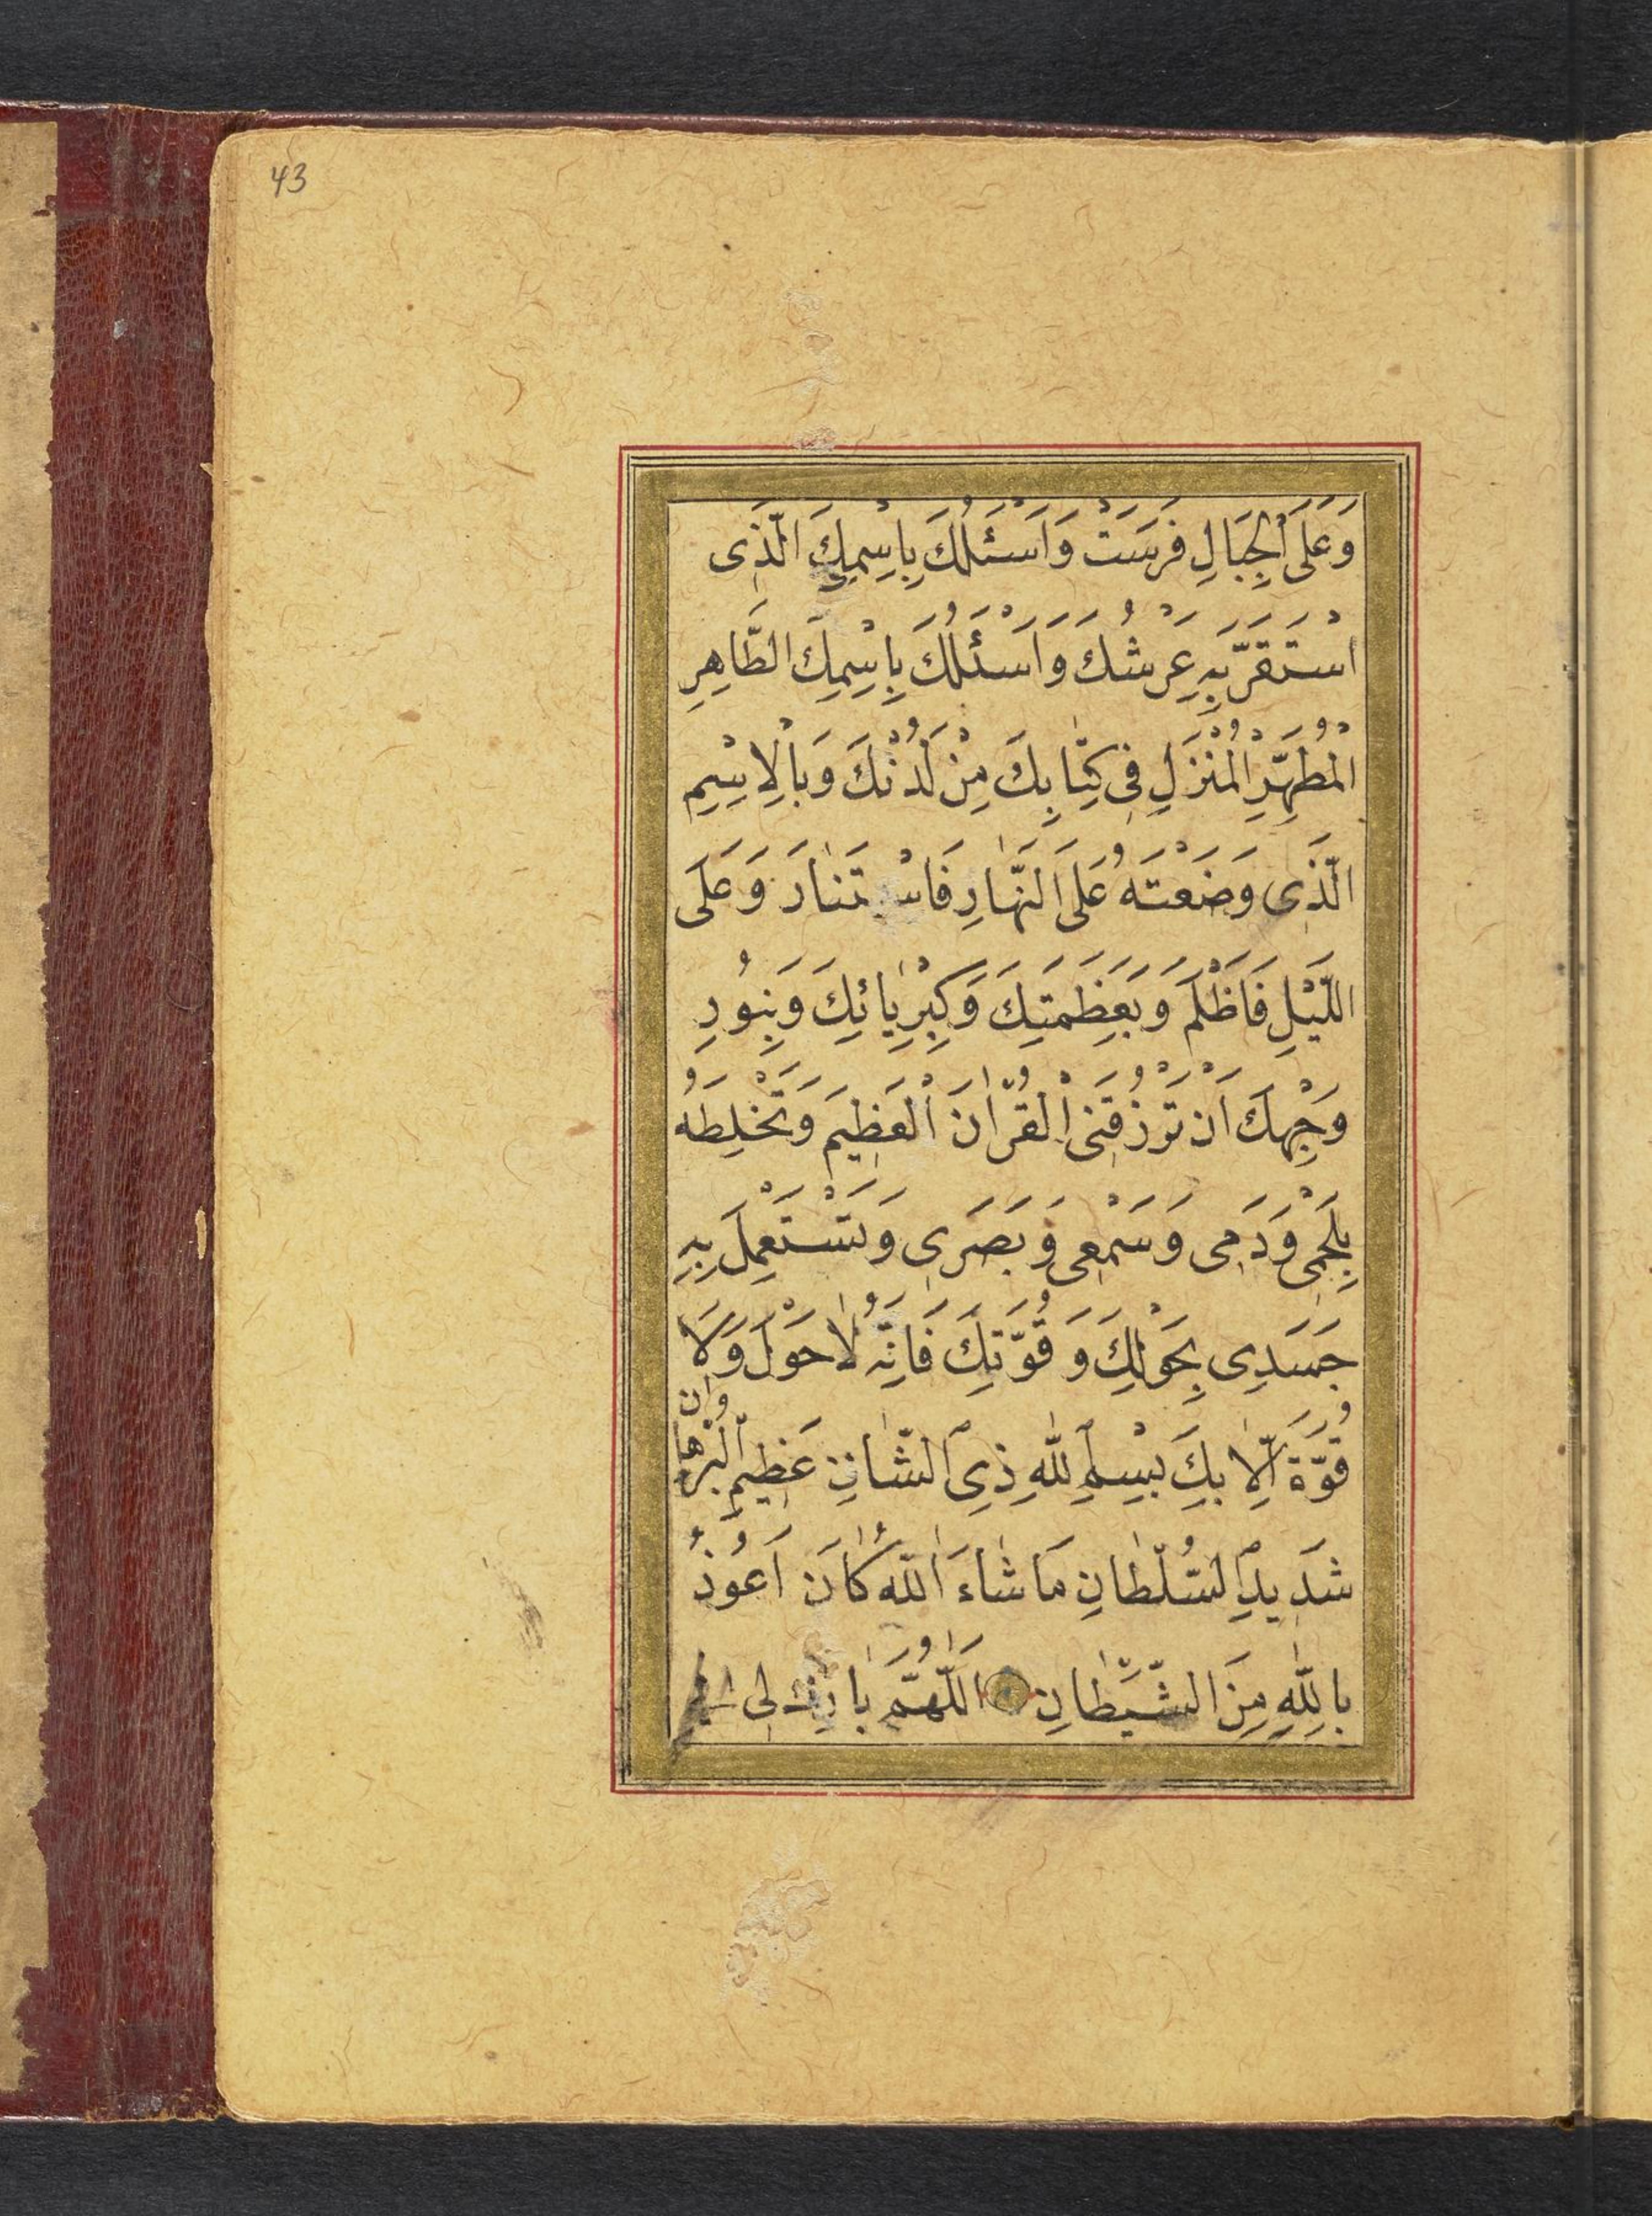 43
وَعَلَى الْجِبَالِ فَرَسَتْ وَاَسْئَلُكَ بِاسْمِكَ الَّذِى
اسْتَقَرَّ بِهِ عَرْشُكَ وَاَسْئَلُكَ بِاسْمِكَ الطَّاهِرِ
الْمُطَهَّرِ الْمُنْزَلِ فِى كِتَابِكَ مِنْ لَدُنْكَ وَبِالْاِسْمِ
الَّذِى وَضَعْتَهُ عَلَى النَّهَارِ فَاسْتَنَارَ وَعَلَى
اللَّيْلِ فَاَظْلَمَ وَبِعَظَمَتِكَ وَكِبْرِيَائِكَ وَبِنُورِ
وَجْهِكَ اَنْ تَرْزُقَنِى الْقُرْاٰنَ الْعَظِيمَ وَتَخْلِطَهُ
بِلَحْمِى وَدَمِى وَسَمْعِى وَبَصَرِى وَتَسْتَعْمِلَ بِهِ
جَسَدِى بِحَوْلِكَ وَقُوَّتِكَ فَاِنَّهُ لَا حَوْلَ وَلَا
قُوَّةَ اِلَّا بِكَ بِسْمِ اللّٰهِ ذِى الشَّانِ عَظِيمِ الْبُرْهَانِ
شَدِيدِ السُّلْطَانِ مَا شَاءَ اللّٰهُ كَانَ اَعُوذُ
بِاللّٰهِ مِنَ الشَّيْطَانِ اَللّٰهُمَّ بَارِكْ لِى